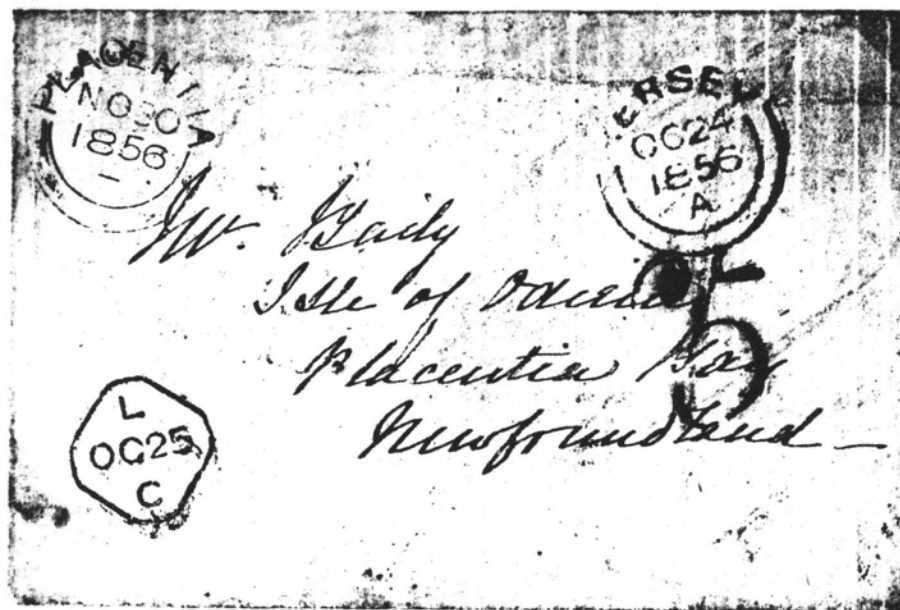 PLACENTIA
NO 30
1856
JERSEY
OC 24
1856
A
Isle of
Placentia Bay
Newfoundland
L
OC 25
C